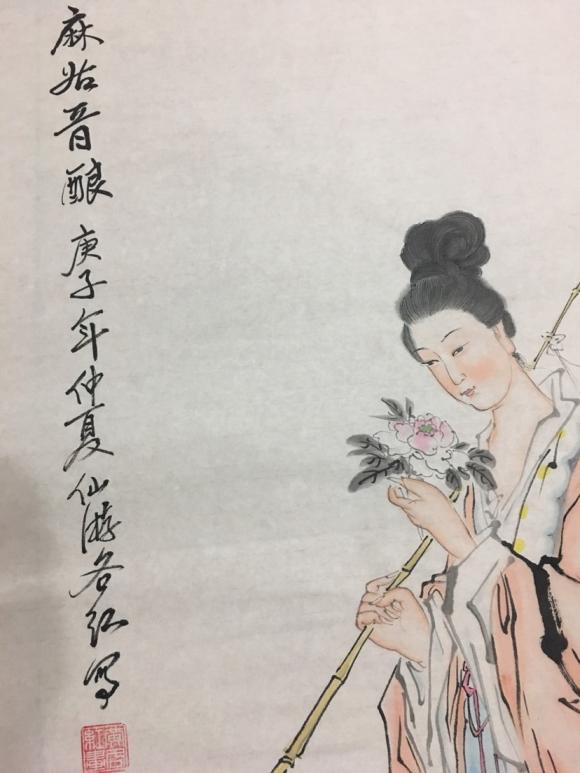 麻姑晋酿 庚子年仲夏仙游各红写